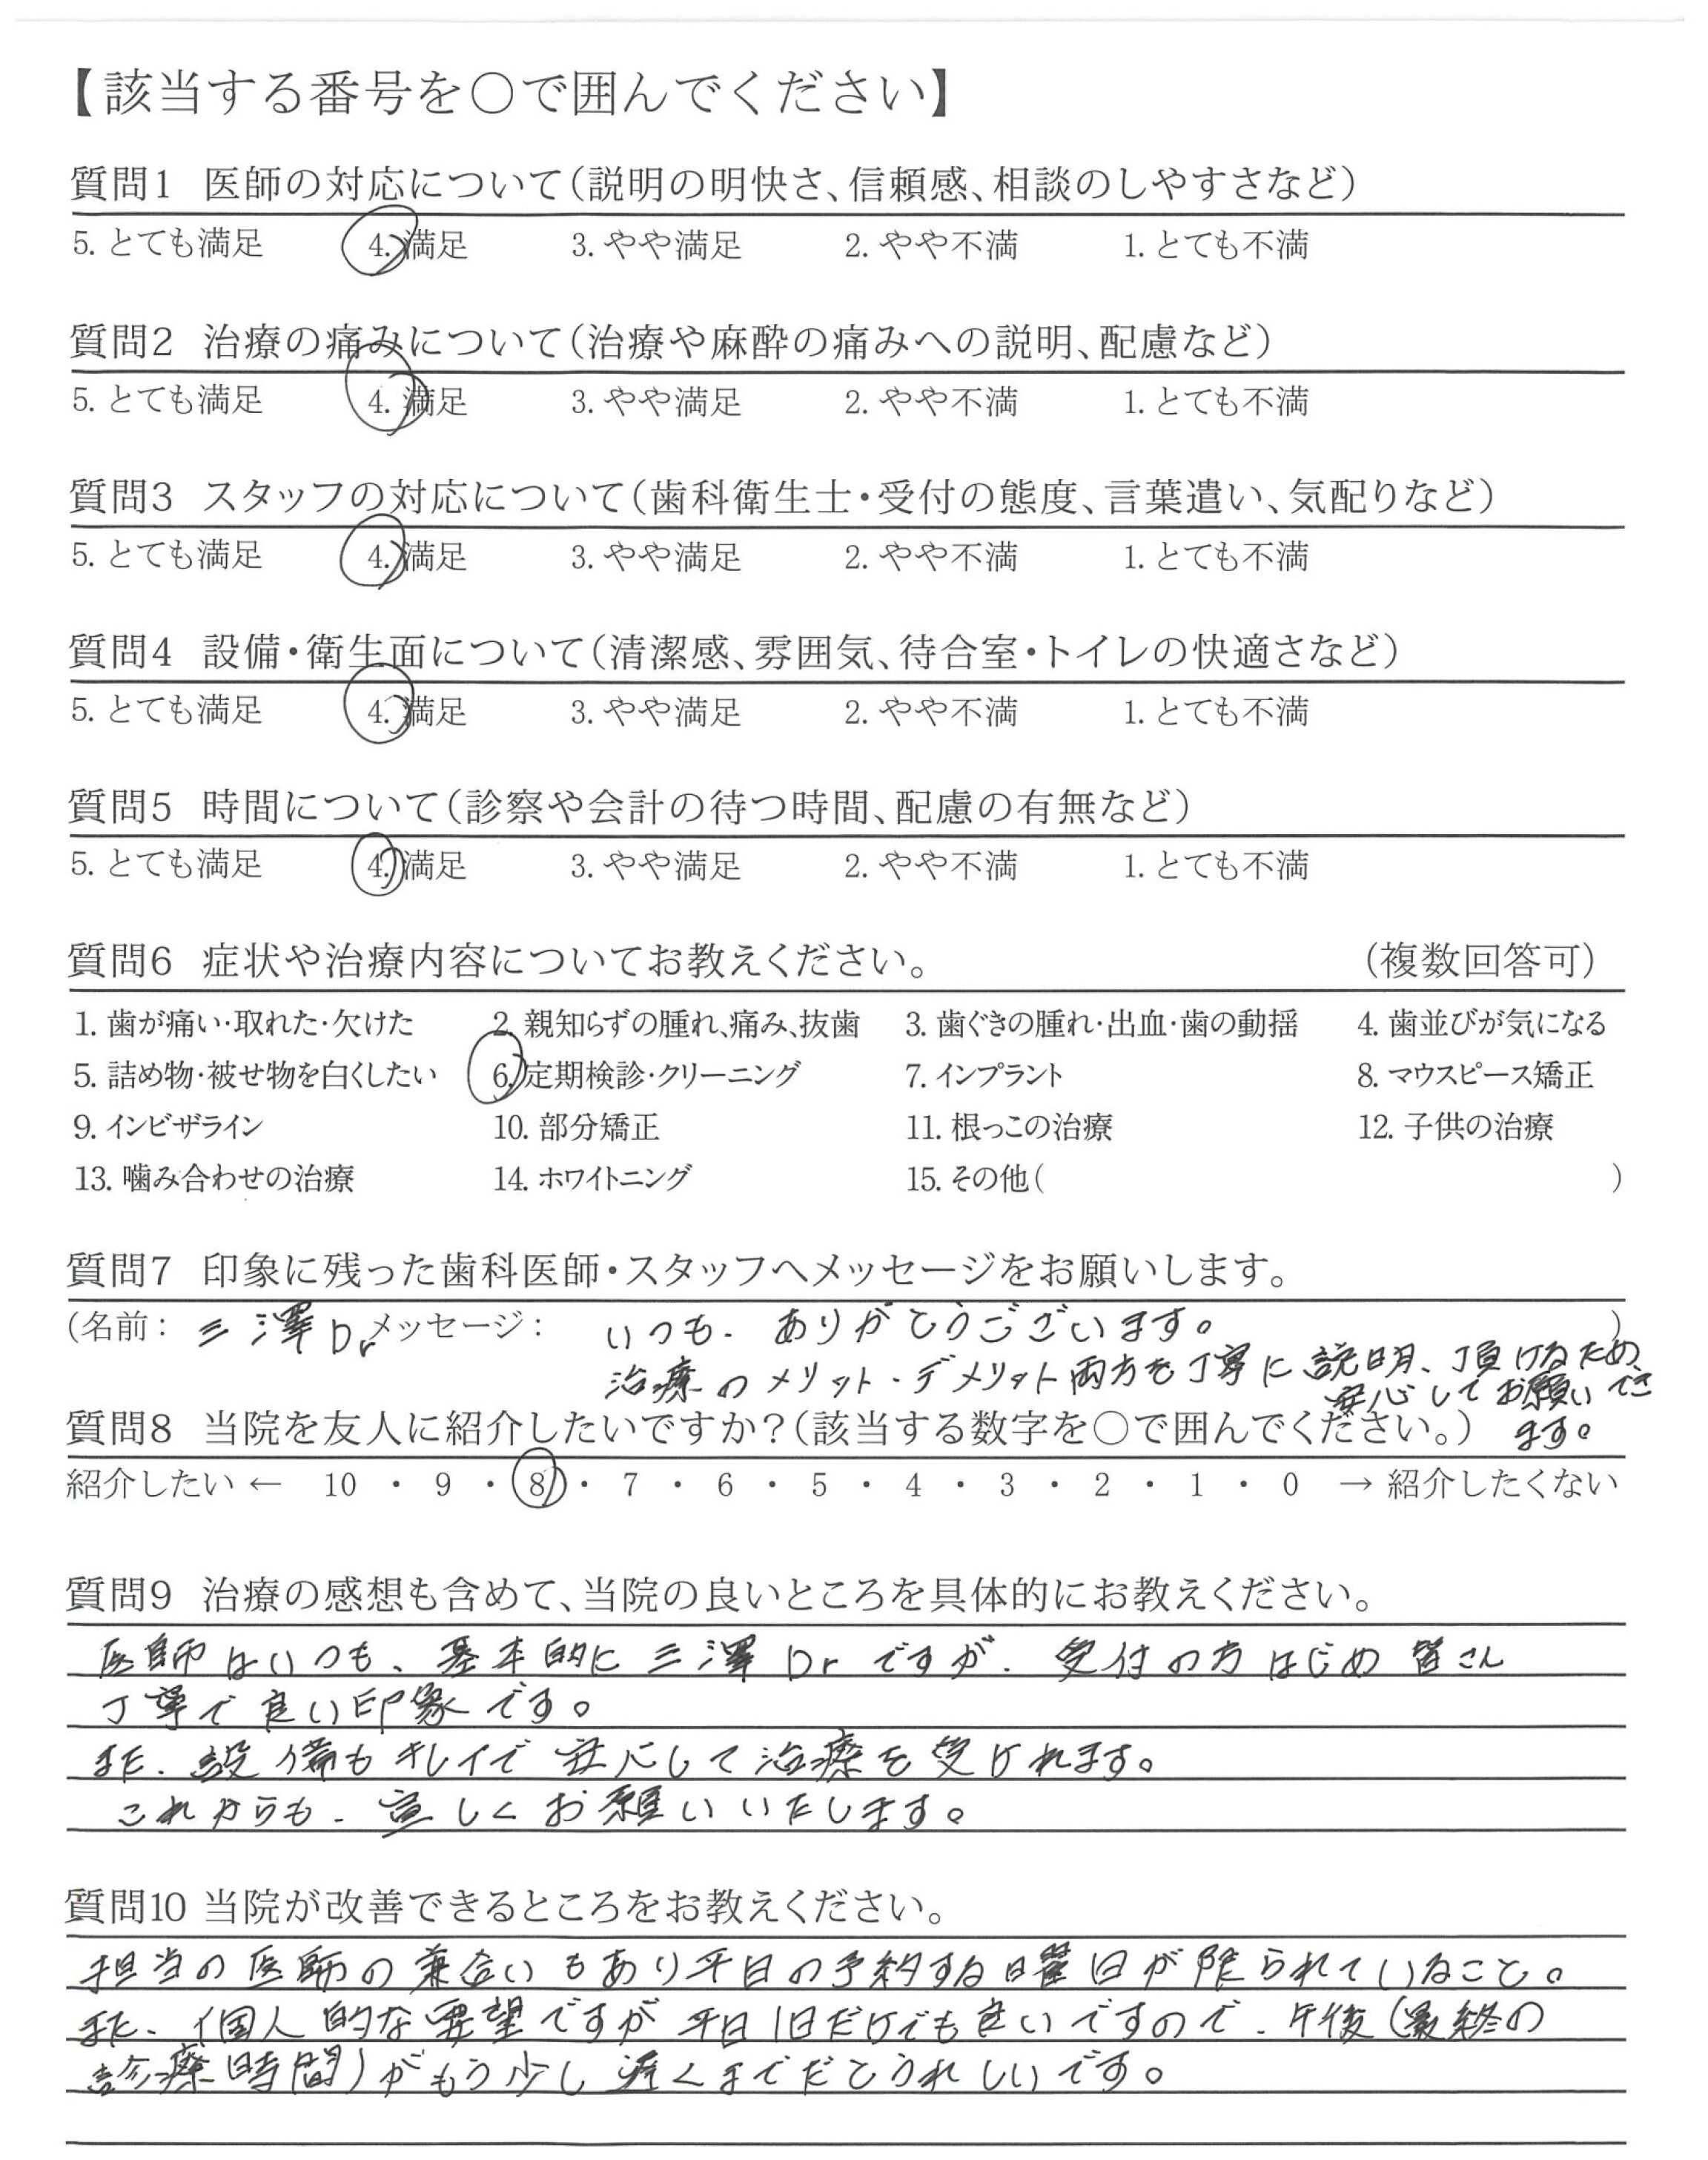 【該当する番号を○で囲んでください】
質問1 医師の対応について（説明の明快さ、信頼感、相談のしやすさなど）
5. とても満足 4. 満足 3. やや満足 2. やや不満 1. とても不満
質問2 治療の痛みについて（治療や麻酔の痛みへの説明、配慮など）
5. とても満足 4. 満足 3. やや満足 2. やや不満 1. とても不満
質問3 スタッフの対応について（歯科衛生士・受付の態度、言葉遣い、気配りなど）
5. とても満足 4. 満足 3. やや満足 2. やや不満 1. とても不満
質問4 設備・衛生面について（清潔感、雰囲気、待合室・トイレの快適さなど）
5. とても満足 4. 満足 3. やや満足 2. やや不満 1. とても不満
質問5 時間について（診察や会計の待つ時間、配慮の有無など）
5. とても満足 4. 満足 3. やや満足 2. やや不満 1. とても不満
質問6 症状や治療内容についてお教えください。 （複数回答可）
1. 歯が痛い・取れた・欠けた 2. 親知らずの腫れ、痛み、抜歯 3. 歯ぐきの腫れ・出血・歯の動揺 4. 歯並びが気になる
5. 詰め物・被せ物を白くしたい 6. 定期検診・クリーニング 7. インプラント 8. マウスピース矯正
9. インビザライン 10. 部分矯正 11. 根っこの治療 12. 子供の治療
13. 噛み合わせの治療 14. ホワイトニング 15. その他（ ）
質問7 印象に残った歯科医師・スタッフへメッセージをお願いします。
（名前： 三澤Dr メッセージ： いつも、ありがとうございます。 ）
治療のメリット・デメリット両方を丁寧に説明、頂けるため
安心してお願いでき
ます。
質問8 当院を友人に紹介したいですか？（該当する数字を○で囲んでください。）
紹介したい ← 10 ・ 9 ・ 8 ・ 7 ・ 6 ・ 5 ・ 4 ・ 3 ・ 2 ・ 1 ・ 0 → 紹介したくない
質問9 治療の感想も含めて、当院の良いところを具体的にお教えください。
医師はいつも、基本的に三澤Drですが、受付の方はじめ皆さん
丁寧で良い印象です。
また、設備もキレイで安心して治療を受けれます。
これからも、宜しくお願いいたします。
質問10 当院が改善できるところをお教えください。
担当の医師の兼合いもあり平日の予約する曜日が限られていること。
また、個人的な要望ですが平日1日だけでも良いですので、午後（最終の
診療時間）がもう少し遅くまでだとうれしいです。